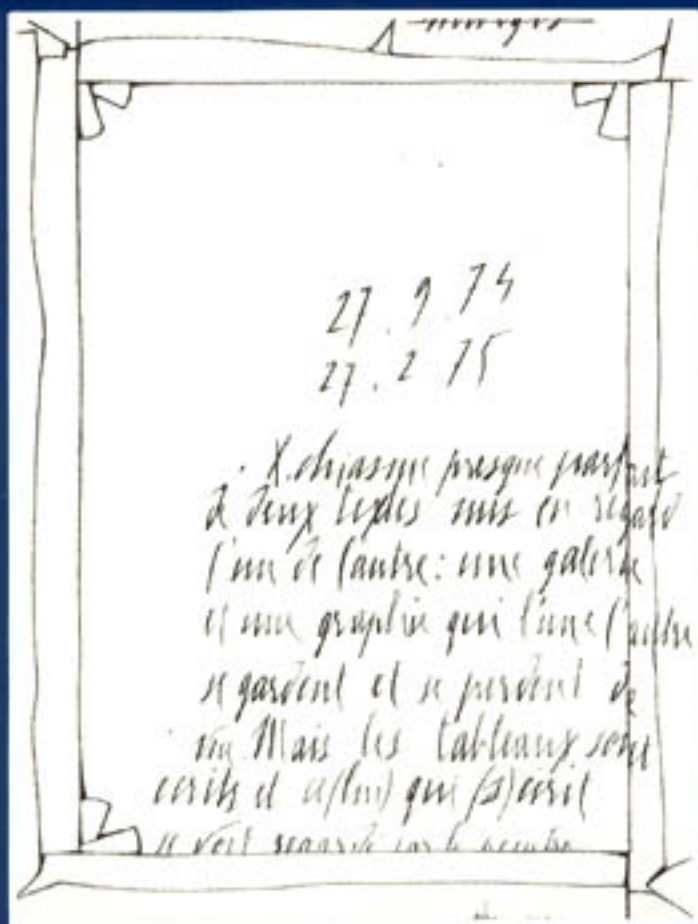 27.9.74
27.2.75
. X. chiasme presque parfait
de deux textes mis en regard
l'un de l'autre: une galerie
et une graphie qui l'une l'autre
se gardent et se perdent de
vue. Mais les tableaux sont
écrits et ce(lui) qui (s)écrit
se voit regardé par le peintre